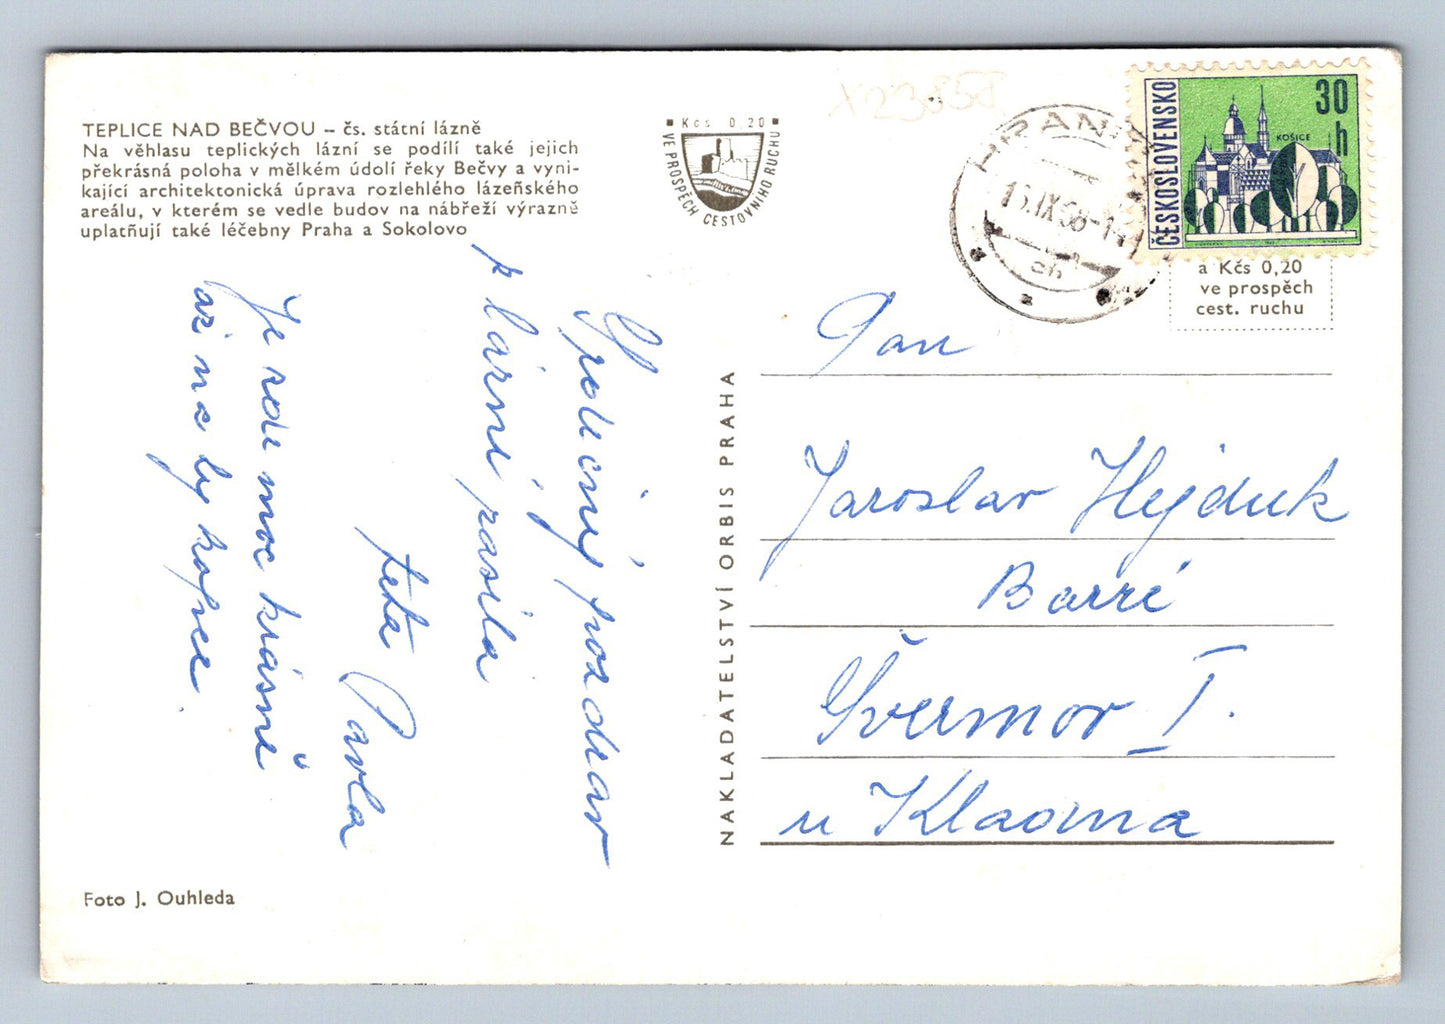 TEPLICE NAD BEČVOU – čs. státní lázně
Na věhlasu teplických lázní se podílí také jejich
překrásná poloha v mělkém údolí řeky Bečvy a vyni-
kající architektonická úprava rozlehlého lázeňského
areálu, v kterém se vedle budov na nábřeží výrazně
uplatňují také léčebny Praha a Sokolovo
Kčs 0,20
VE PROSPĚCH CESTOVNÍHO RUCHU
X23858
HRANI
13.IX.68-14
2h
ČESKOSLOVENSKO
30 h
KOŠICE
a Kčs 0,20
ve prospěch
cest. ruchu
Srdečný pozdrav
z lázní zasílá
teta Pavla
Je zde moc krásně
až na ty kopce
NAKLADATELSTVÍ ORBIS PRAHA
Pan
Jaroslav Hejduk
Barré
Švermov I.
u Kladna
Foto J. Ouhleda